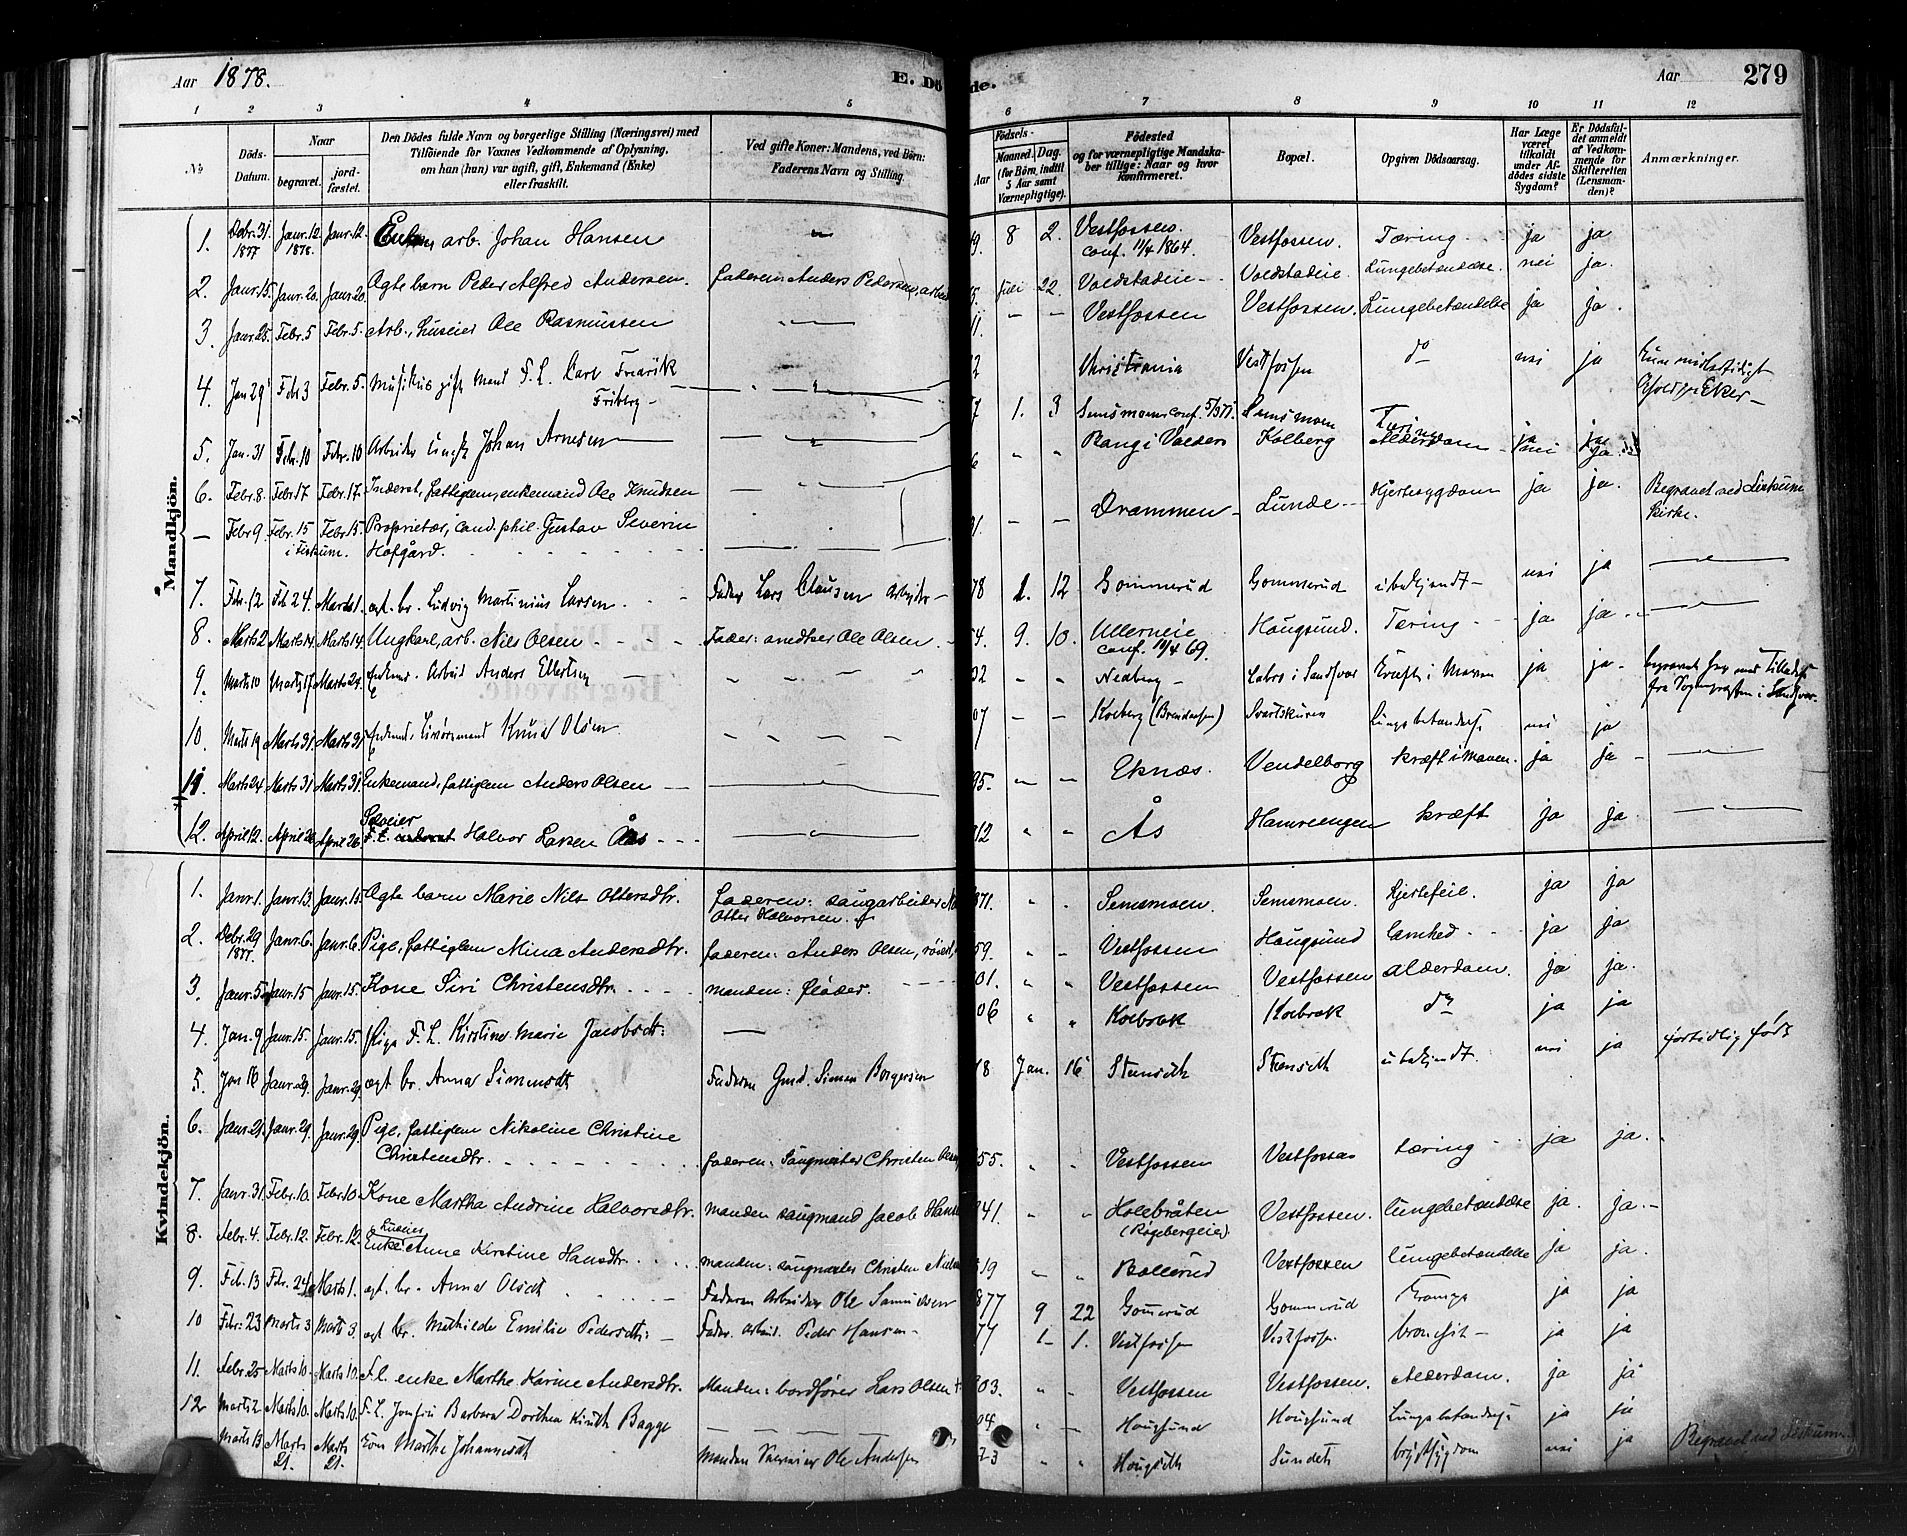 Aar 1878.
E. Dö
de.
Aar
279
1 2 3 4 5 6 7 8 9 10 11 12
№
Döds-Datum.
Naar
begravet.
jord-fæstet.
Den Dödes fulde Navn og borgerlige Stilling (Næringsvei) med
Tilföiende for Voxnes Vedkommende af Oplysning,
om han (hun) var ugift, gift, Enkemand (Enke)
eller fraskilt.
Ved gifte Koner: Mandens, ved Börn:
Faderens Navn og Stilling.
Födsels-
Aar
Maaned.
Dag.
(for Börn, indtil
5 Aar samt
Værnepligtige).
Födested
og for værnepligtige Mandska-
ber tillige: Naar og hvor
konfirmeret.
Bopæl.
Opgiven Dödsaarsag.
Har Læge
været
tilkaldt
under Af-
dødes sidste
Sygdom?
Er Dödsfal-
det anmeldt
af Vedkom-
mende for
Skifteretten
(Lensman-
den)?
Anmærkninger.
Mandkjön.
1. Debr. 31. 1877 Janr. 12. 1878. Janr. 12. arb. Johan Hansen 9. 8 2. Vestfossen. conf. 11/4 1864. Vestfossen. Tæring ja ja
2. Janr. 15. Janr. 20. Janr. 20. Ægte barn Peder Alfred Andersen. faderen: Anders Pedersen, arb. 5. Juli 22. Voldstadeie Voldstadeie. Lungebetændelse. nei ja.
3. Janr. 25. Febr. 5 Febr. 5. Arb., huseier Ole Rasmussen 11. Vestfossen Vestfossen. Lungebetændelse ja ja.
4. Jan 29 Feb 3 Febr. 5. Musikus gift mand F. L. Carl Fredrik Friberg 2 Christiania Vestfossen do nei ja Eker
5. Jan. 31 Febr. 10 Febr. 10 Arbeider ungk Johan Arnesen 7 1. 3 Semsmoen conf. Semsmoen Tæring ja ja
6. Febr. 8. Febr 17 Febr. 17. Inderst, fattiglem, enkemand Ole Knudsen 6 Vang i Valders Kolberg Alderdom nei ja
Febr 9. Febr. 15 i Fiskum. Febr 15. Proprietær, cand. phil. Gustav Severin Hofgård. 31. Drammen Lunde Hjertesygdom ja ja. Begravet ved Fiskum Kirke.
7. Febr. 12 Feb 24. Marts 1. ægt. br. Ludvig Martinius Larsen. Fader Lars Clausen arbeider 78 1. 12 Gommerud Gommerud ubekjendt nei ja
8. Marts 2 Marts 14. Marts 14. Ungkarl, arb. Nils Olsen Fader: Ole Olsen 54. 9. 10. Ullerneie conf. 11/4 69. Hougsund. Tæring ja ja
9. Marts 10 Marts 17 Marts 24. Enkem. Arbeid Anders Ellertsen 02 Nedberg Labro i Sandsvær Kræft i Maven ja ja. begravet her med Tilladelse fra Sognepræsten i Sandsvær
10. Marts 19 Marts 31. Marts 31 Knud Olsen 07 Kolberg Svartskuren Lungebetændelse nei ja
11. Marts 24. Marts 31 Marts 31. Enkemand, fattiglem Anders Olsen 95. Eknæs. Vendelborg kræft i Maven. ja ja
12. April 12. April 26 April 26. Selveier Halvor Larsen Ås 12 Ås Hamreengen kræft ja ja
Kvindekjön.
1. Janr. 1. Janr. 13. Janr. 13. Ægte barn Marie Nils Ottersdtr. faderen: saugarbeider Otter Halvorsen. 871. Semsmoen. Semsmoen. Hjertefeil. ja ja
2. Debr. 29 1877. Janr. 6. Janr. 6. Pige, fattiglem Mina Andersdtr. faderen: Anders Olsen, 59. Vestfossen Hougsund Lamhed ja ja
3. Janr. 5 Janr. 15 Janr. 15. Kone Siri Christensdtr. manden: fløder. 01. Vestfossen Vestfossen Alderdom. ja ja.
4. Jan. 9 Janr. 15. Janr. 15. Pige F. L. Kirstine Marie Jacobsdt: 06 Kolbræk Kolbræk do ja ja
5. Jan 16 Janr. 29. Janr. 29. ægt br. Anna Simensdt Faderen Gmd. Simen Borgersen 78 Jan. 16 Stenseth Stenseth ubekjendt. nei ja fortidlig født
6. Janr. 21. Janr. 29. Janr. 29. Pige, fattiglem Nikoline Christine Christensdtr. faderen: Saugmester Christen Olsen 55. Vestfossen Vestfossen tæring ja ja.
7. Janr. 31. Febr. 10. Febr. 10 Kone Martha Andrine Halvorsdtr. manden saugmand Jacob Hansen 841. Holebråten (Røgebergeie). Vestfossen. lungebetændelse ja. ja.
8. Febr. 4. Febr. 12. Febr. 12. Enke Anne Kirstine Hansdtr. manden: saugmester Christen Nielsen 819 Bollerud Vestfossen lungebetændelse ja ja.
9. Feb. 13 Febr. 24 Marts 1. ægt. br. Anna Olsdt Faderen Arbeider Ole Samuelsen 877 9 22 Gommerud Gommerud Krampe ja ja
10 Febr. 23 Marts 3 Marts 3. ægt br. Mathilde Emilie Pedersdt: Fader. arbeid. Peder Hansen 77 1 1. Vestfossen Vestfossen bronchit ja ja
11. Febr. 25 Marts 10. Marts 10. F. l. enke Marthe Karine Andersdtr. Manden: bordfører Lars Olsen 803. Vestfossen Vestfossen. Alderdom. ja ja
12 Marts 2 Marts 10. Marts 10. F. L. Jomfru Barbara Dorthea Knuth Bagge 04 Hougsund Hougsund Lungebetændelse ja ja
Marts 13 Marts 21. Marts 21. Kone Marthe Johannesdt Manden Ole Andersen 23 Hougseth Sundet brystsygdom nei ja Begravet ved Fiskum